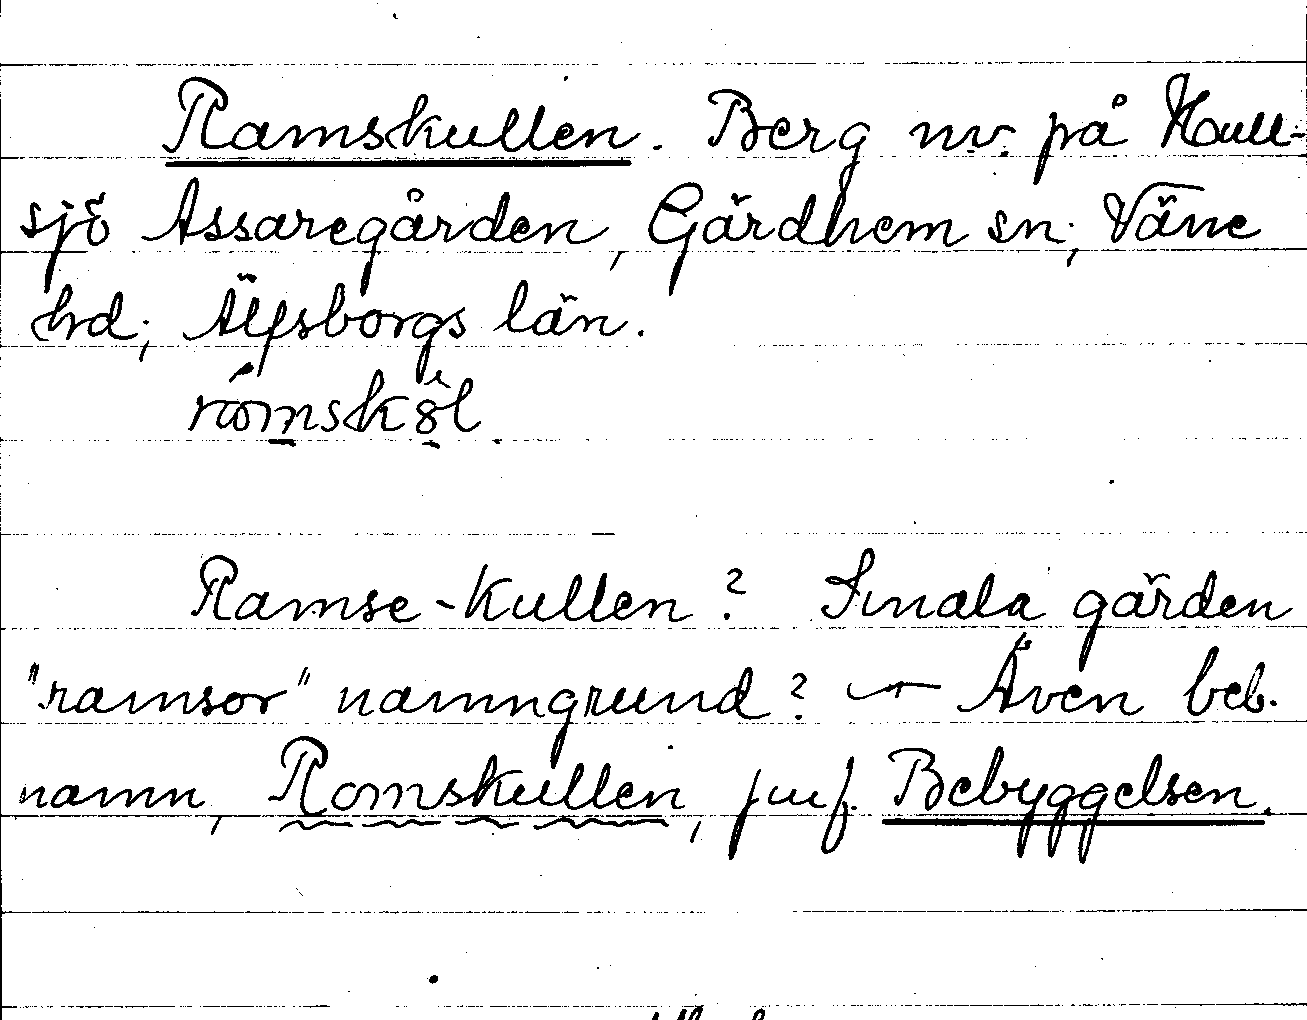 Ramskullen. Berg nv. på Hull-
sjö Assaregården, Gärdhem sn; Väne
hd; Älfsborgs län.
Ramse-kullen? Smala gärden
"ramsor" namngrund? — Även beb.
namn, Romskullen, jmf. Bebyggelsen.